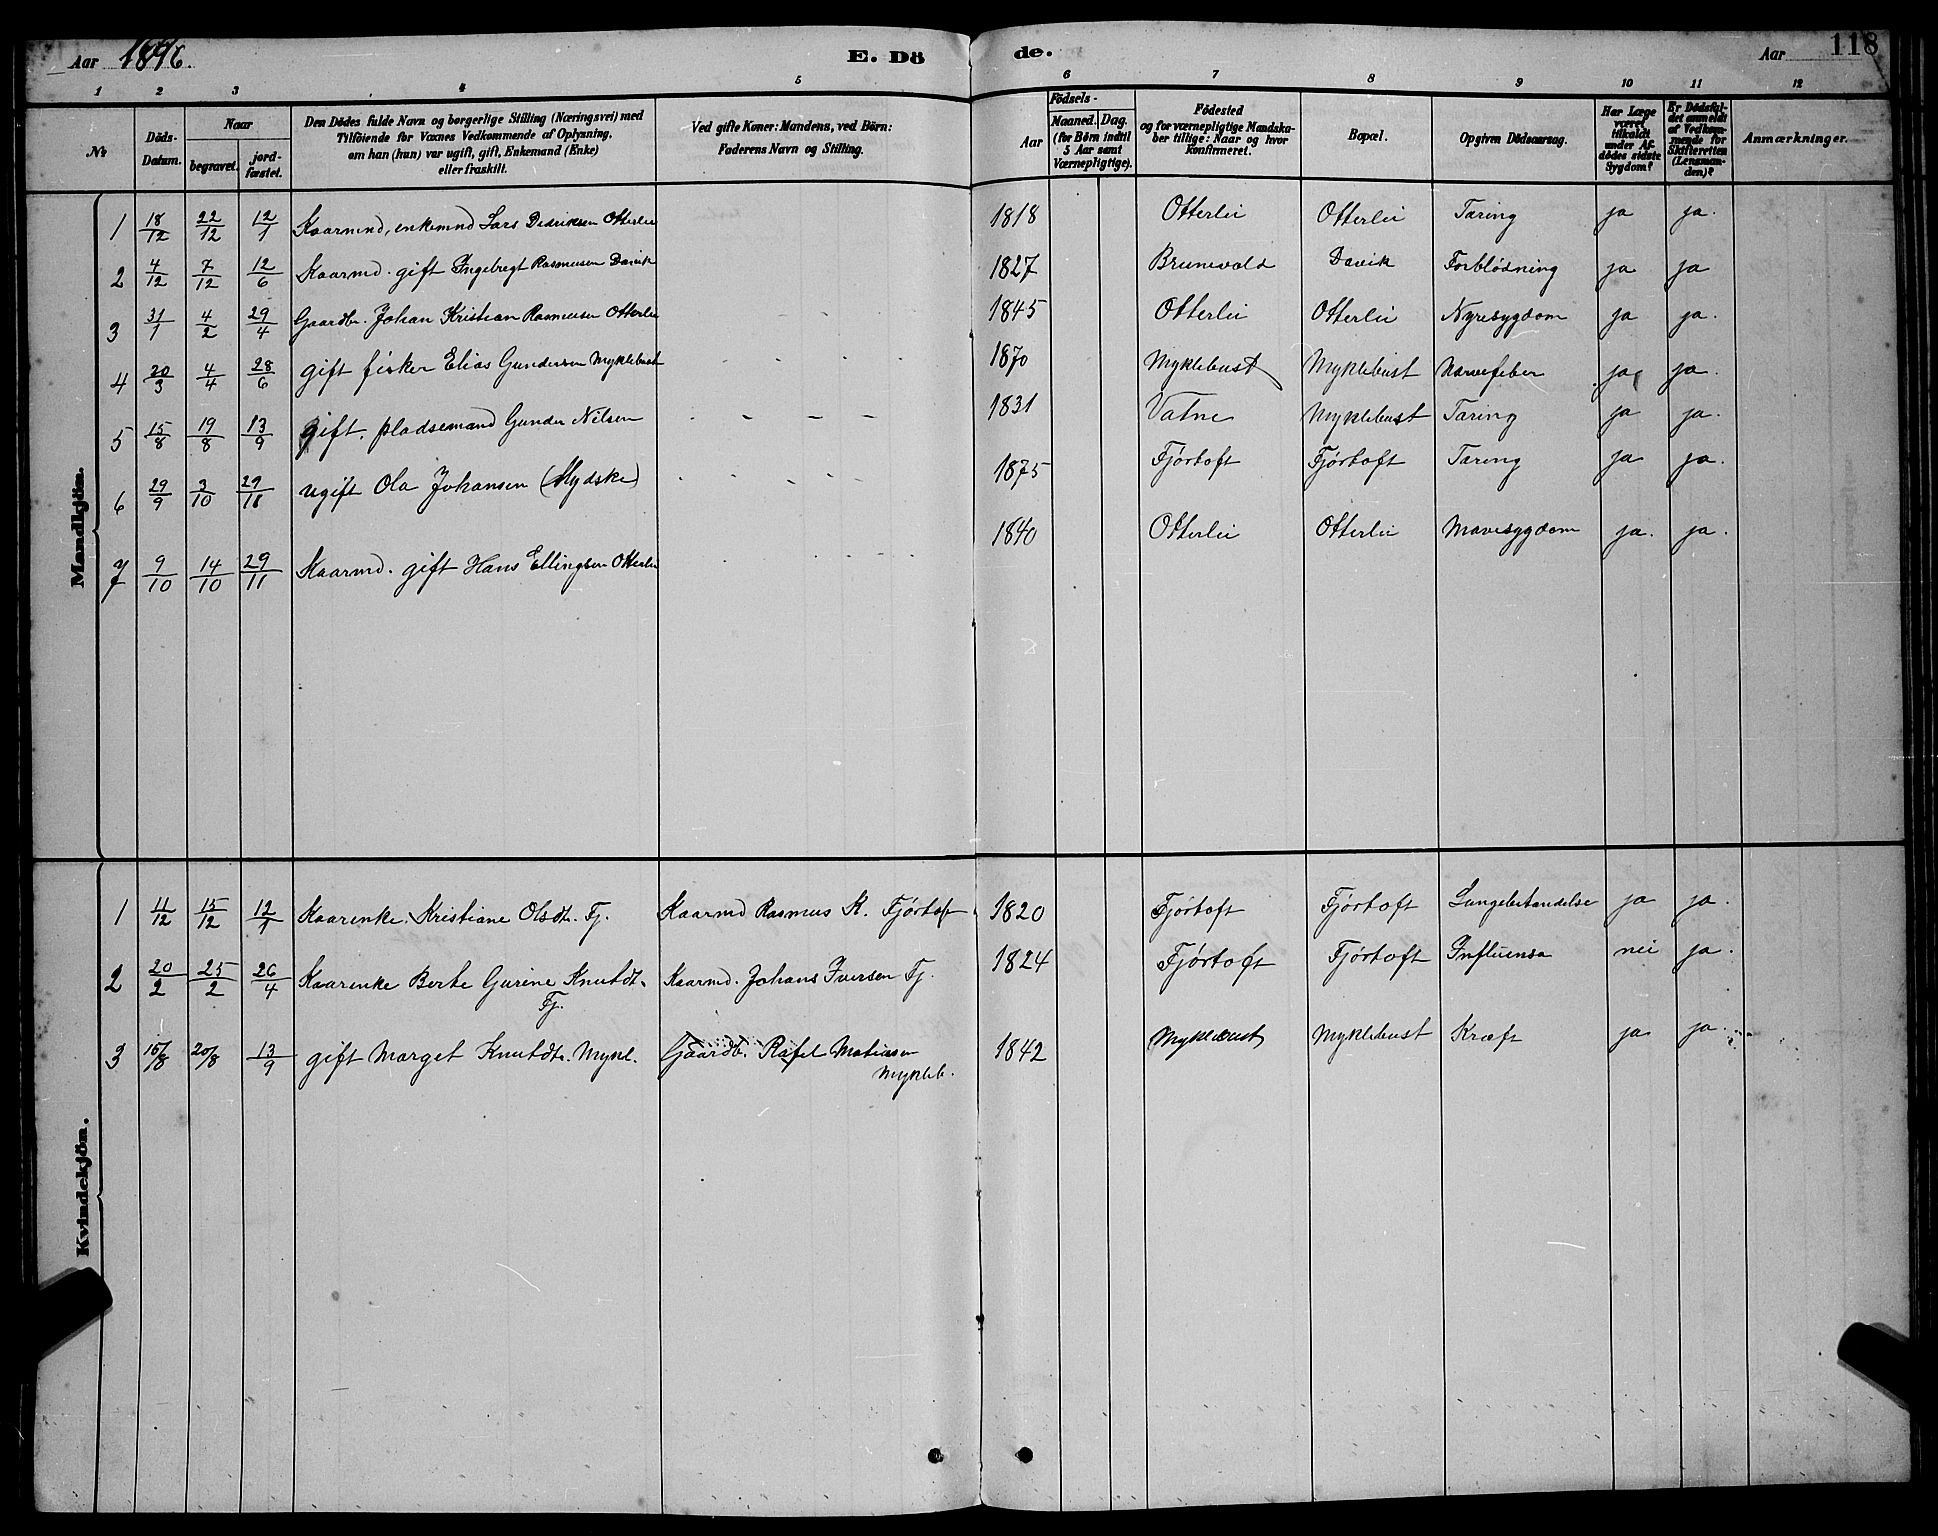 Aar 1896. E. Dö de. Aar 118
1 2 3 4 5 6 7 8 9 10 11 12
No.
Döds-Datum.
Naar
begravet.
jord-fæstet.
Den Dödes fulde Navn og borgerlige Stilling (Næringsvei) med
Tilföiende for Voxnes Vedkommende af Oplysning,
om han (hun) var ugift, gift, Enkemand (Enke)
eller fraskilt.
Ved gifte Koner: Mandens, ved Börn:
Faderens Navn og Stilling.
Födsels-
Aar
Maaned. Dag.
(for Börn indtil
5 Aar samt
Værnepligtige).
Födested
og for værnepligtige Mandska-
ber tillige: Naar og hvor
konfirmeret.
Bopæl.
Opgiven Dödsaarsag.
Har Læge
været
tilkaldt
under Af-
dödes sidste
Sygdom?
Er Dödsfal-
det anmeldt
af Vedkom-
mende for
Skifteretten
(Lensman-
den)?
Anmærkninger.
Mandkjön.
1 18/12 22/12 12/1 Kaarmnd, enkemnd Lars Didriksen Otterlei 1818 Otterlei Otterlei Tæring ja ja.
2 4/12 7/12 12/6 Kaarmd. gift Ingebregt Rasmusen Davik 1827 Brunvold Davik Forblødning ja ja
3 31/1 4/2 29/4 Gaardbr. Johan Kristian Rasmusen Otterlei 1845 Otterlei Otterlei Nyresygdom ja ja.
4 30/3 4/4 28/6 gift fisker Elias Gundersen Myklebust 1870 Myklebust Myklebust Nervefeber ja ja.
5 15/8 19/8 13/9 gift. pladsemand Gunder Nilsen 1831 Vatne Myklebust Tæring ja ja.
6 29/9 3/10 29/11 ugift Ola Johansen (Mydske) 1875 Fjørtoft Fjørtoft Tæring ja ja.
7 9/10 14/10 29/11 Kaarmd. gift Hans Ellingsen Otterlei 1840 Otterlei Otterlei Mavesygdom ja. ja.
Kvindekjön.
1 11/12 15/12 12/1 Kaarenke. Kristiane Olsdtr. Fj. Kaarmd Rasmus K. Fjørtoft 1820 Fjørtoft Fjørtoft Lungebetændelse ja ja.
2 20/2 25/2 26/4 Kaarenke Berte Gurine Knutdt. Kaarmd. Johans Iversen Fj. 1824 Fjørtoft Fjørtoft Influensa nei ja.
Fj.
3 15/8 20/8 13/9 gift Marget Knutdtr. Mykl. Gaardb. Rafel Matiasen 1842 Myklebust Myklebust Kræft ja ja.
Mykleb.